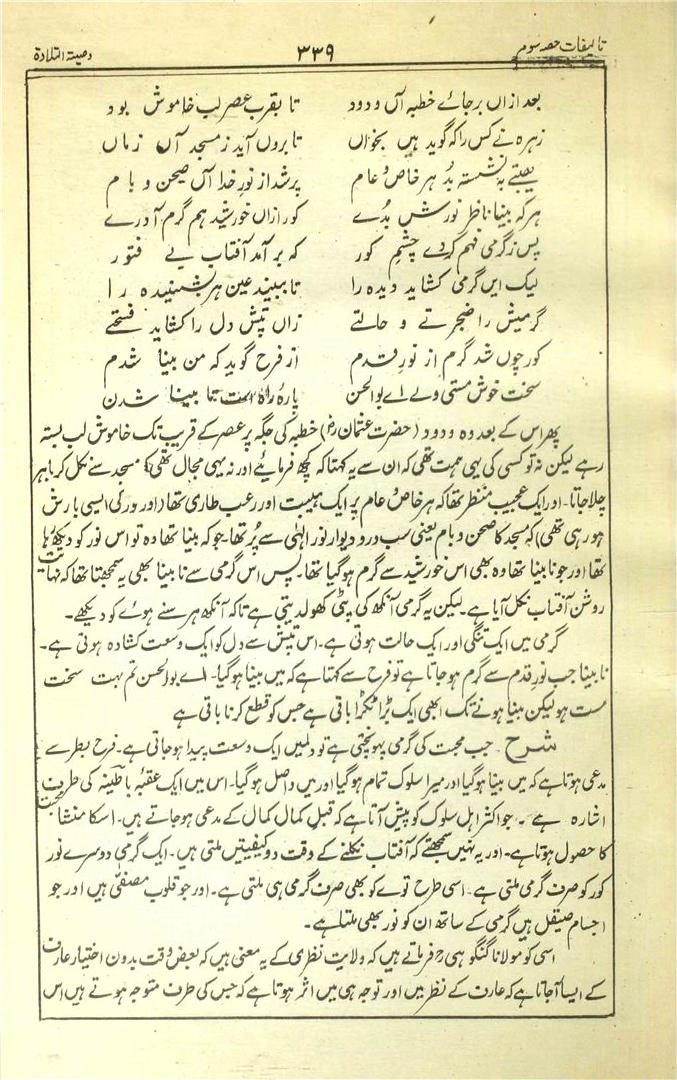 تالیفات حصہ سوم ۳۳۹ وصیۃ التلاوۃ
بعد ازاں برجائے خطبہ آں ودود تا بقرب عصر لب خاموش بود
زہرہ نے کس را کہ گوید ہیں بخواں تا بروں آید ز مسجد آں زماں
ہیبتے بنشستہ بد ہر خاص و عام پر شد از نور خدا آں صحن و بام
ہر کہ بینا ناظر نورش بدے کور زاں خورشید ہم گرم آمدے
پس ز گرمی فہم کردے چشم کور کہ برآمد آفتاب بے فتور
لیک ایں گرمی کشاید دیدہ را تا ببیند عین ہر بشنیدہ را
گرمیش را ضجرتے و حالتے زاں تپش دل را کشاید فسحتے
کور چوں شد گرم از نور قدم از فرح گوید کہ من بینا شدم
سخت خوش مستی ولے اے بوالحسن پارۂ راہ است تا بینا شدن
پھر اس کے بعد وہ ودود (حضرت عثمانؓ) خطبہ کی جگہ پر عصر کے قریب تک خاموش لب بستہ
رہے لیکن نہ تو کسی کی یہی ہمت تھی کہ ان سے یہ کہتا کہ کچھ فرمائیے اور نہ یہی مجال تھی کہ مسجد سے نکل کر باہر
چلا جاتا۔ اور ایک عجیب منظر تھا کہ ہر خاص و عام پر ایک ہیبت اور رعب طاری تھا (اور نور کی ایسی بارش
ہو رہی تھی) کہ مسجد کا صحن و بام یعنی سب در و دیوار نور الٰہی سے پُر تھا۔ جو کہ بینا تھا وہ تو اس نور کو دیکھ رہا
تھا اور جو نابینا تھا وہ بھی اس خورشید سے گرم ہو گیا تھا۔ پس اس گرمی سے نابینا بھی یہ سمجھتا تھا کہ نہایت
روشن آفتاب نکل آیا ہے۔ لیکن یہ گرمی آنکھ کی پٹی کھول دیتی ہے تاکہ آنکھ ہر سنے ہوئے کو دیکھے۔
گرمی میں ایک تنگی اور ایک حالت ہوتی ہے۔ اس تپش سے دل کو ایک وسعت کشادہ ہوتی ہے۔
نابینا جب نور قدم سے گرم ہو جاتا ہے تو فرح سے کہتا ہے کہ میں بینا ہو گیا۔ اے بوالحسن تم بہت سخت
مست ہو لیکن بینا ہونے تک ابھی ایک بڑا ٹکڑا باقی ہے جس کو قطع کرنا باقی ہے
شرح۔ جب محبت کی گرمی پہونچتی ہے تو دلمیں ایک وسعت پیدا ہو جاتی ہے۔ فرح بطر سے
مدعی ہوتا ہے کہ میں بینا ہو گیا اور میرا سلوک تمام ہو گیا اور میں واصل ہو گیا۔ اس میں ایک عقبۂ باطنیہ کی طرف
اشارہ ہے۔ جو اکثر اہل سلوک کو پیش آتا ہے کہ قبل کمال کمال کے مدعی ہو جاتے ہیں۔ اسکا منشا محبت
کا حصول ہوتا ہے۔ اور یہ نہیں سمجھتے کہ آفتاب نکلنے کے وقت دو کیفیتیں ملتی ہیں۔ ایک گرمی دوسرے نور
کور کو صرف گرمی ملتی ہے۔ اسی طرح توے کو بھی صرف گرمی ہی ملتی ہے۔ اور جو قلوب مصفّٰی ہیں اور جو
اجسام صیقل ہیں گرمی کے ساتھ ان کو نور بھی ملتا ہے۔
اسی کو مولانا گنگوہیؒ فرماتے ہیں کہ ولایت نظری کے یہ معنی ہیں کہ بعض وقت بدون اختیار عارف
کے ایسا آ جاتا ہے کہ عارف کے نظر میں اور توجہ ہی میں اثر ہوتا ہے کہ جس کی طرف متوجہ ہوتے ہیں اس